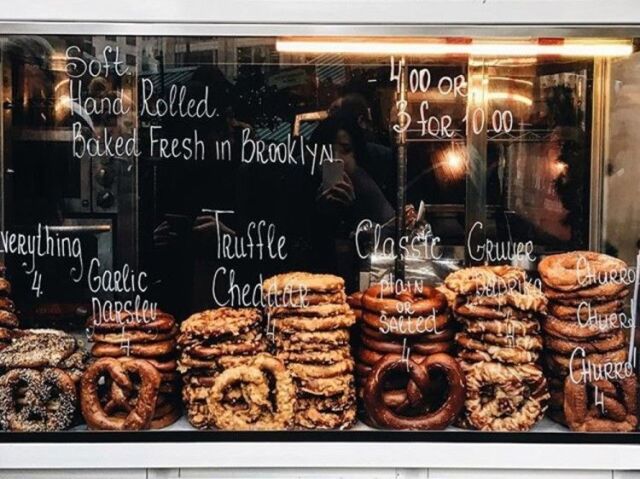 Soft.
Hand Rolled.
Baked Fresh in Brooklyn
4.00 or
3 for 10.00
verything
4.
Garlic
Parsley
4
Truffle
Cheddar
4
Classic
plain
or
Salted
4
Gruyer
Paprika
4
Churro
Churro
Churro
4